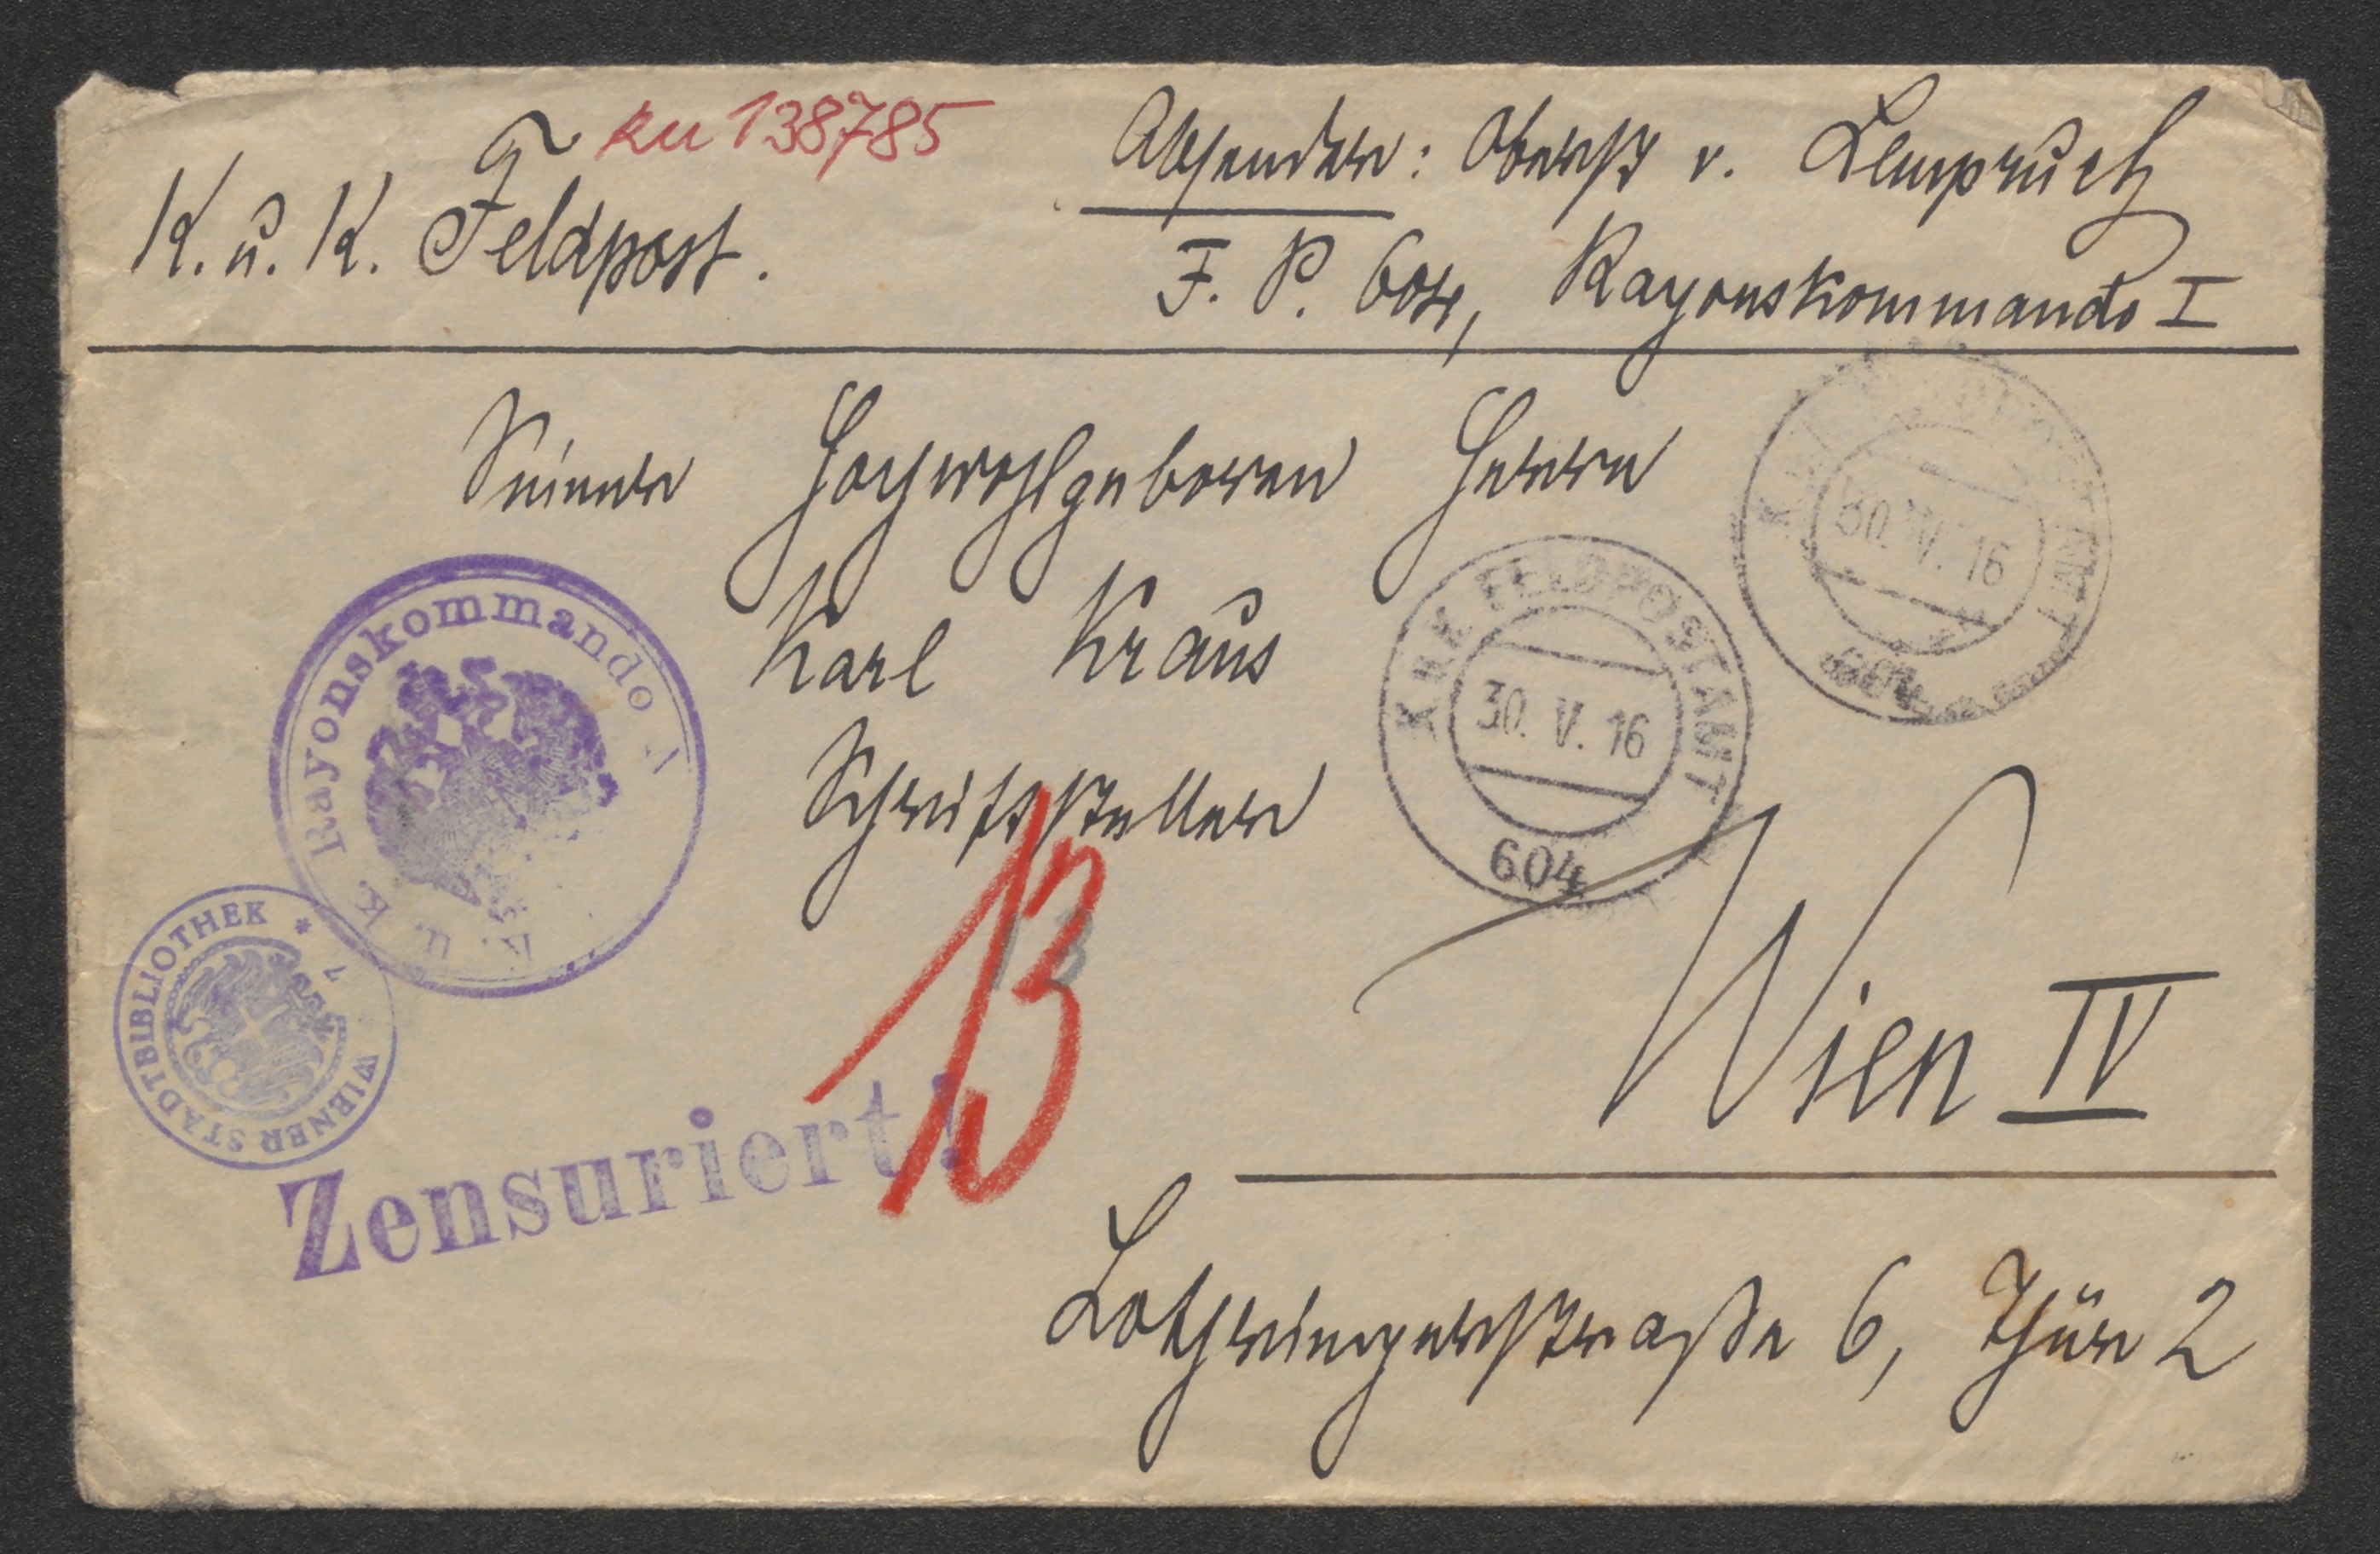 ku 138785
K. u. K. Feldpost.
Absender: Oberst v. Lempruch
F. P. 604, Rayonskommando I
Seiner Hochwohlgeboren Herrn
Karl Kraus
Schriftsteller
Wien IV
Lothringerstraße 6, Thür 2
K. u. K. Rayonskommando
K.u.K. FELDPOSTAMT
30. V. 16
604
K.u.K. FELDPOSTAMT
30. V. 16
604
WIENER STADTBIBLIOTHEK *
13
13
Zensuriert!